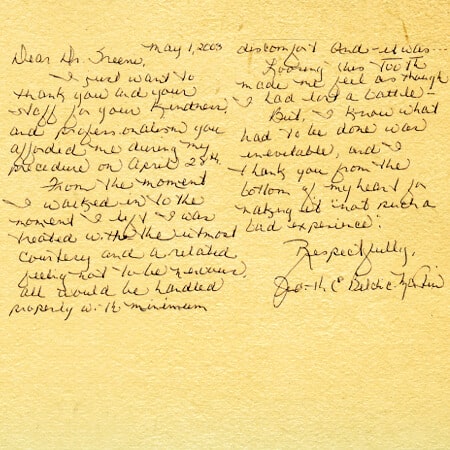 May 1, 2003
Dear Dr. Greene,
I just want to
thank you and your
staff for your kindness
and professionalism you
afforded me during my
procedure on April 28th.
From the moment
I walked in to the
moment I left I was
treated with the utmost
courtesy and a related
feeling not to be nervous,
all would be handled
properly with minimum
discomfort and it was...
Loosing this Tooth
made me feel as though
I had lost a battle -
But, I know what
had to be done was
inevitable, and I
thank you from the
bottom of my heart for
making it "not such a
bad experience".
Respectfully,